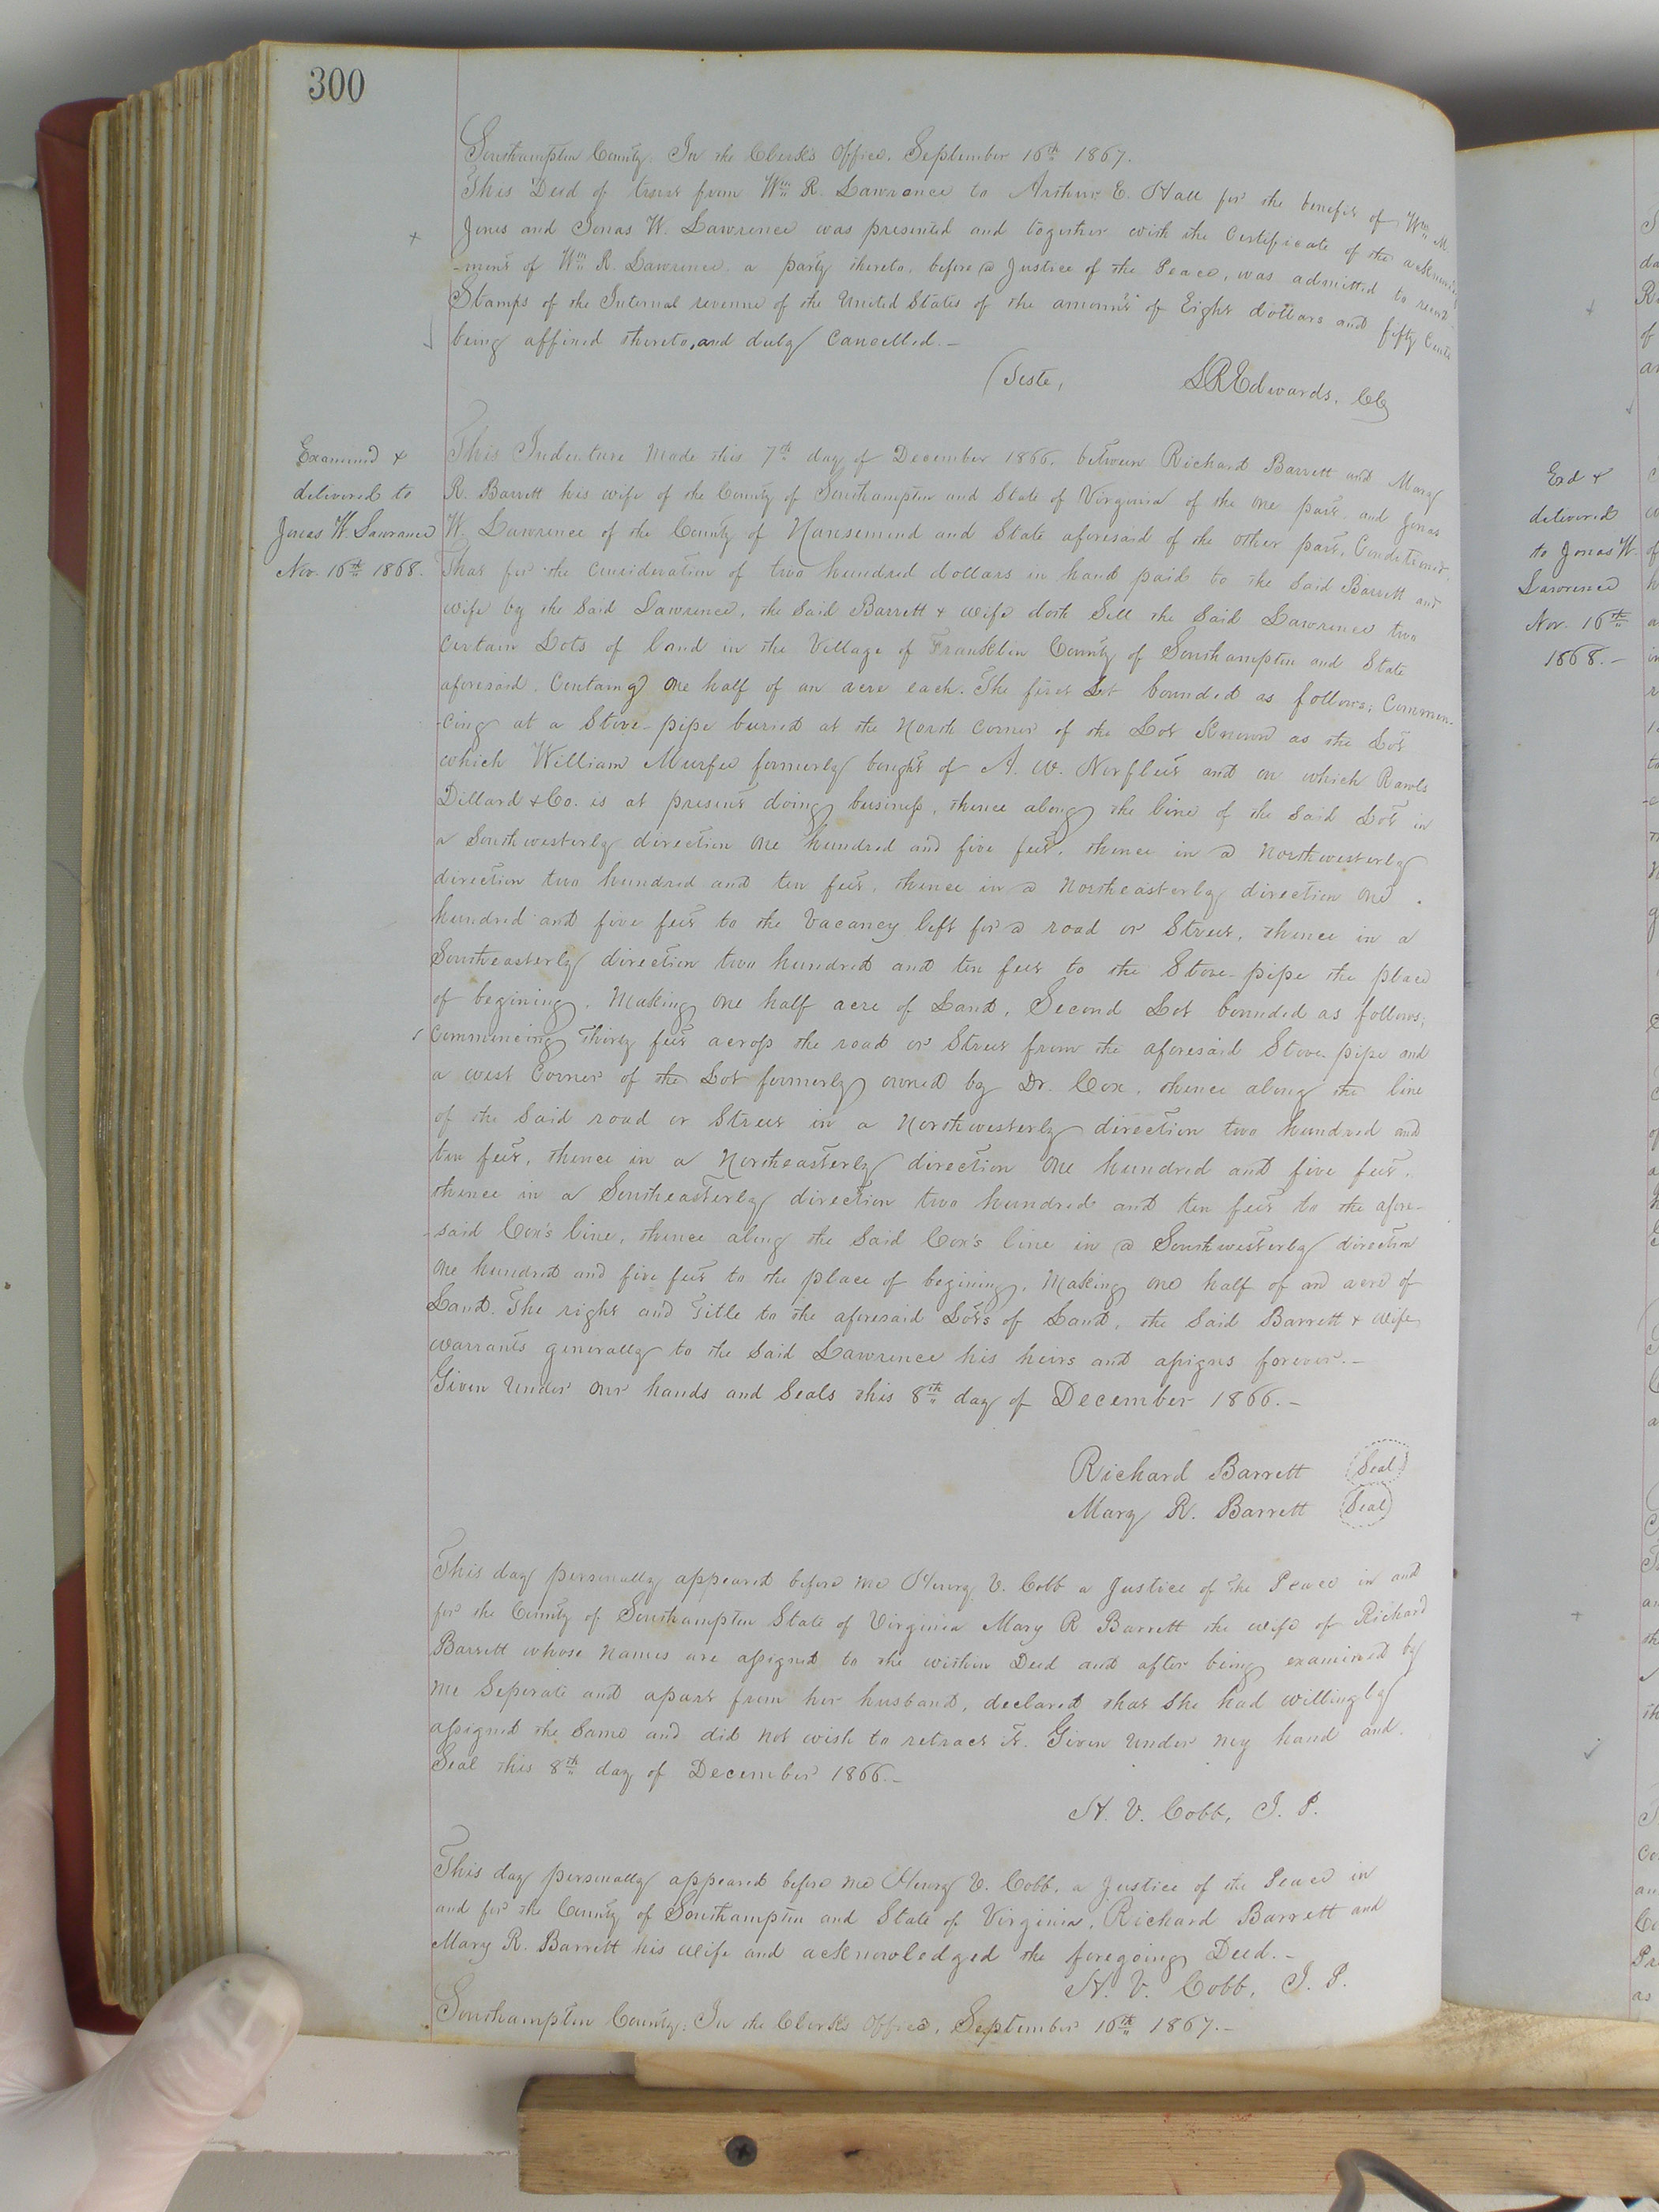 300
Southampton County. In the Clerk's Office, September 16th 1867.
This Deed of trust from Wm R. Lawrence to Arthur E. Hall for the benefit of Wm M.
Jones and Jonas W. Lawrence was presented and together with the Certificate of the
-ment of Wm R. Lawrence, a party thereto, before a Justice of the Peace, was admitted to record
Stamps of the Internal revenue of the United States of the amount of Eight dollars and fifty Cents
being affixed thereto, and duly Cancelled. —
Teste, LREdwards, CC
Examined &
delivered to
Jonas W. Lawrence
Nov. 16th 1868.
This Indenture Made this 7th day of December 1866, between Richard Barrett and Mary
R. Barrett his wife of the County of Southampton and State of Virginia of the one part, and Jonas
W. Lawrence of the County of Nansemond and State aforesaid of the other part, Conditioned,
That for the Consideration of two hundred dollars in hand paid to the said Barrett and
wife by the Said Lawrence, the Said Barrett & wife doth Sell the Said Lawrence two
Certain Lots of land in the Village of Franklin County of Southampton and State
aforesaid, Containg one half of an acre each. The first Lot bounded as follows; Commen-
-cing at a Stove-pipe buried at the North Corner of the Lot Known as the Lot
which William Murfee formerly bought of A. W. Norfleet and on which Rawls
Dillard & Co. is at present doing business, thence along the line of the Said Lot in
a Southwesterly direction One hundred and five feet, thence in a Northwesterly
direction two hundred and ten feet, thence in a Northeasterly direction one
hundred and five feet to the Vacancy left for a road or Street, thence in a
Southeasterly direction two hundred and ten feet to the Stove-pipe the place
of begining, Making one half acre of Land, Second Lot bounded as follows;
Commencing Thirty feet across the road or Street from the aforesaid Stove-pipe and
a west Corner of the Lot formerly owned by Dr. Cox, thence along the line
of the Said road or Street in a Northwesterly direction two hundred and
ten feet, thence in a Northeasterly direction One hundred and five feet,
thence in a Southeasterly direction two hundred and ten feet to the afore-
-said Cox's line, thence along the Said Cox's line in a Southwesterly direction
One hundred and five feet to the place of begining, Making one half of an acre of
Land. The right and Title to the aforesaid Lots of Land, the Said Barrett & wife
warrants generally to the Said Lawrence his heirs and assigns forever. —
Given Under our hands and Seals this 8th day of December 1866. —
Richard Barrett (Seal)
Mary R. Barrett (Seal)
This day personally appeared before me Henry V. Cobb a Justice of the Peace in and
for the County of Southampton State of Virginia Mary R Barrett the wife of Richard
Barrett whose Names are assigned to the within Deed and after being examined by
me Seperate and apart from her husband, declared that she had willingly
assigned the Same and did not wish to retract it. Given Under my hand and
Seal this 8th day of December 1866. —
H. V. Cobb, J. P.
This day personally appeared before me Henry V. Cobb, a Justice of the Peace in
and for the County of Southampton and State of Virginia, Richard Barrett and
Mary R. Barrett his wife and acknowledged the foregoing Deed. —
H. V. Cobb, J. P.
Southampton County: In the Clerk's Office, September 16th 1867. —
Exd &
delivered
to Jonas W.
Lawrence
Nov. 16th
1868. —